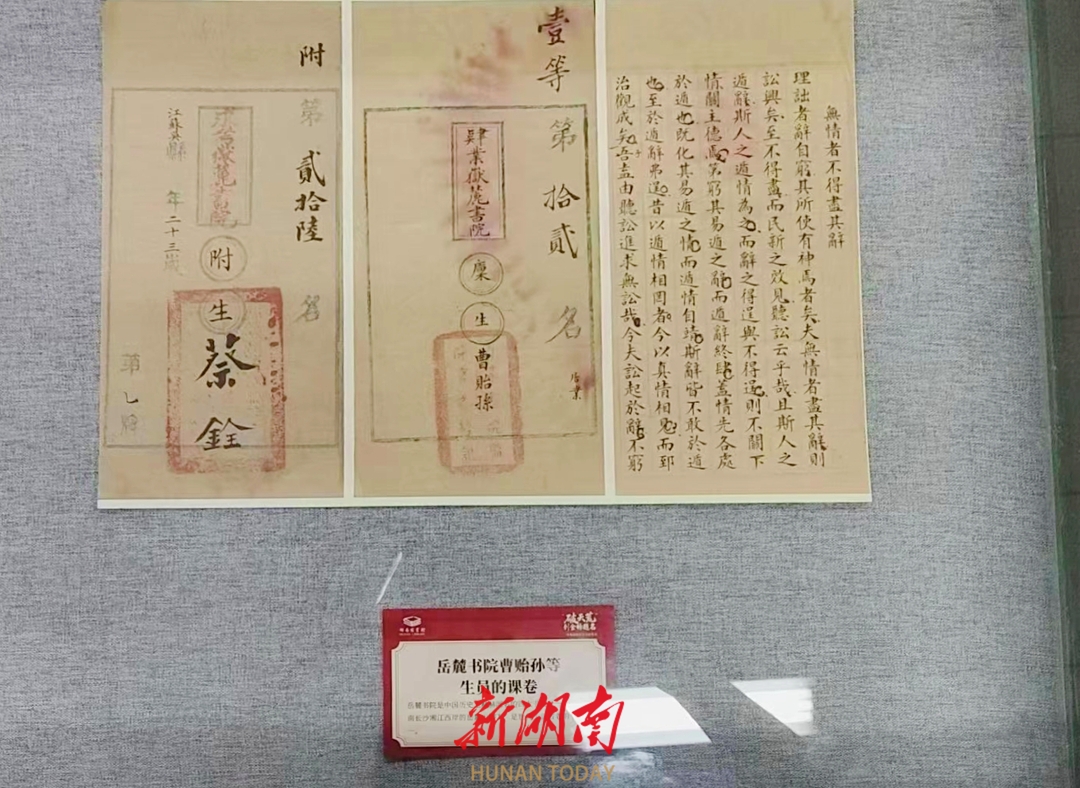 無情者不得盡其辭
理詘者辭自窮其所使有神焉者矣夫無情者盡其辭則
訟興矣至不得盡而民新之效見聽訟云乎哉且斯人之
遁辭斯人之遁情為之而辭之得逞與不得逞則不關下
情關主德焉第窮其易遁之辭而遁辭終肆蓋情先各處
於遁也既化其易遁之情而遁情自靖斯辭皆不敢於遁
也至於遁辭弗逞昔以遁情相罔者今以真情相見而郅
治觀成矣吾盍由聽訟進求無訟哉今夫訟起於辭不窮
壹等
第拾貳名
肄業嶽麓書院
廩生曹貽孫
附
第貳拾陸名
附生蔡銓
年二十三歲
岳麓书院曹贻孙等
生员的课卷
岳麓书院是中国历史
南长沙湘江西岸的
新湖南
HUNAN TODAY